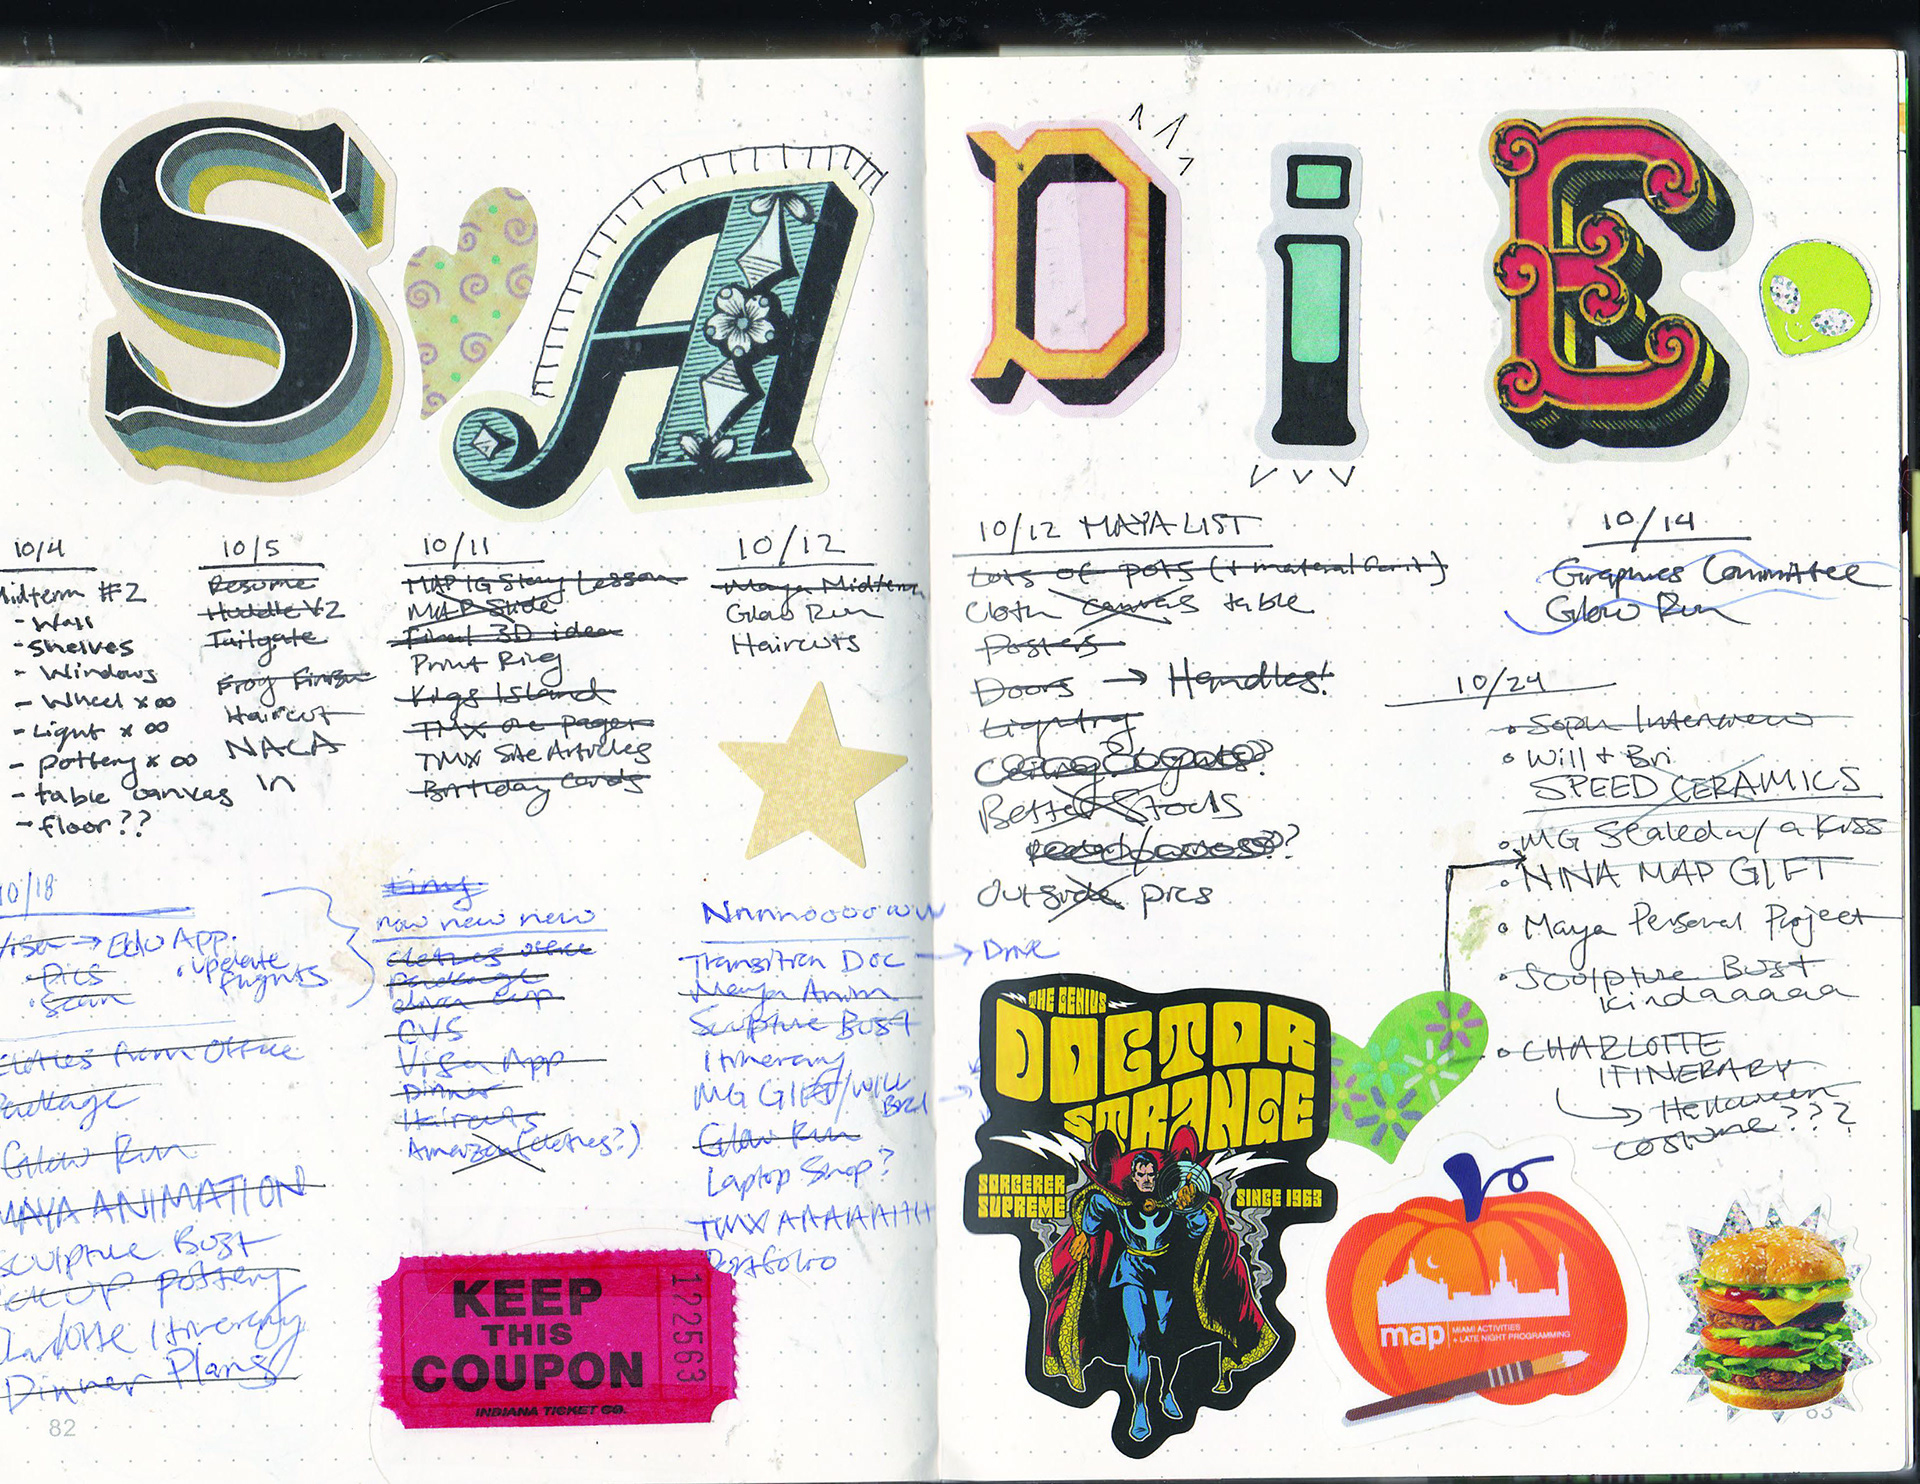 S A D i E
10/4
Midterm #2
- Wall
- Shelves
- Windows
- Wheel x ∞
- Light x ∞
- pottery x ∞
- table canvas
- floor??
10/5
Resume
Huddle V2
Tailgate
Frog Finish
Haircut
NACA
in
10/11
MAP IG Story Lesson
MAP Slide
Final 3D idea
Print Ring
Kings Island
TMX one pager
TMX Site Articles
Birthday Cards
10/12
Maya Midterm
Glow Run
Haircuts
10/18
Visa → Edu App.
• Pics
• Scan
• update flights
Clothes from Office
Package
Glow Run
MAYA ANIMATION
Sculpture Bust
Pick up pottery
Charlotte Itinerary
Dinner Plans
tiny
now new new
clothes office
Package
CVS
Visa App
Dinner
Haircuts
Amazon (clothes?)
Nnnnoooowww
Transition Doc → Drive
Maya Anim
Sculpture Bust
Itinerary
MG GIFT/Will
Bri
Glow Run
Laptop Shop?
TMX AAAAAHH
Portfolio
KEEP
THIS
COUPON
INDIANA TICKET CO.
122563
82
10/12 MAYA LIST
Lots of pots (+ material)
Cloth canvas table
Posters
Doors → Handles!
Lighting
Ceiling Lights?
Better Stools
?
Outside pics
10/14
Graphics Committee
Glow Run
10/24
• Interview
• Will + Bri
SPEED CERAMICS
• MG Sealed w/ a Kiss
• NINA MAP GIFT
• Maya Personal Project
• Sculpture Bust
Kindaaaaa
• CHARLOTTE
ITINERARY
→ Halloween
costume???
THE GENIUS
DOCTOR
STRANGE
SORCERER
SUPREME
SINCE 1963
map
MIAMI ACTIVITIES
+ LATE NIGHT PROGRAMMING
83